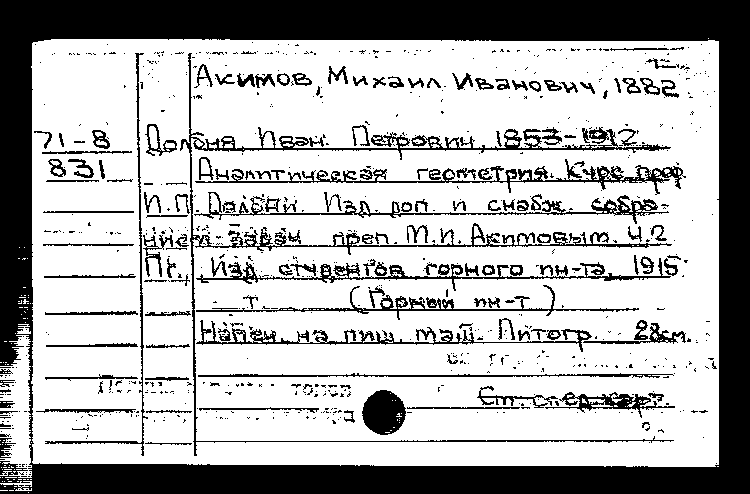 Акимов, Михаил Иванович, 1882
71-8 Долбня, Иван Петрович, 1853-1912
831 Аналитическая геометрия. Курс проф.
И.П. Долбни. Изд. доп. и снабж. собра-
нием задач преп. М.И. Акимовым. Ч.2
Пг., Изд. студентов горного ин-та, 1915
т. (Горный ин-т).
Напеч. на пиш. маш. Литогр. 28см.
См. след. карт.